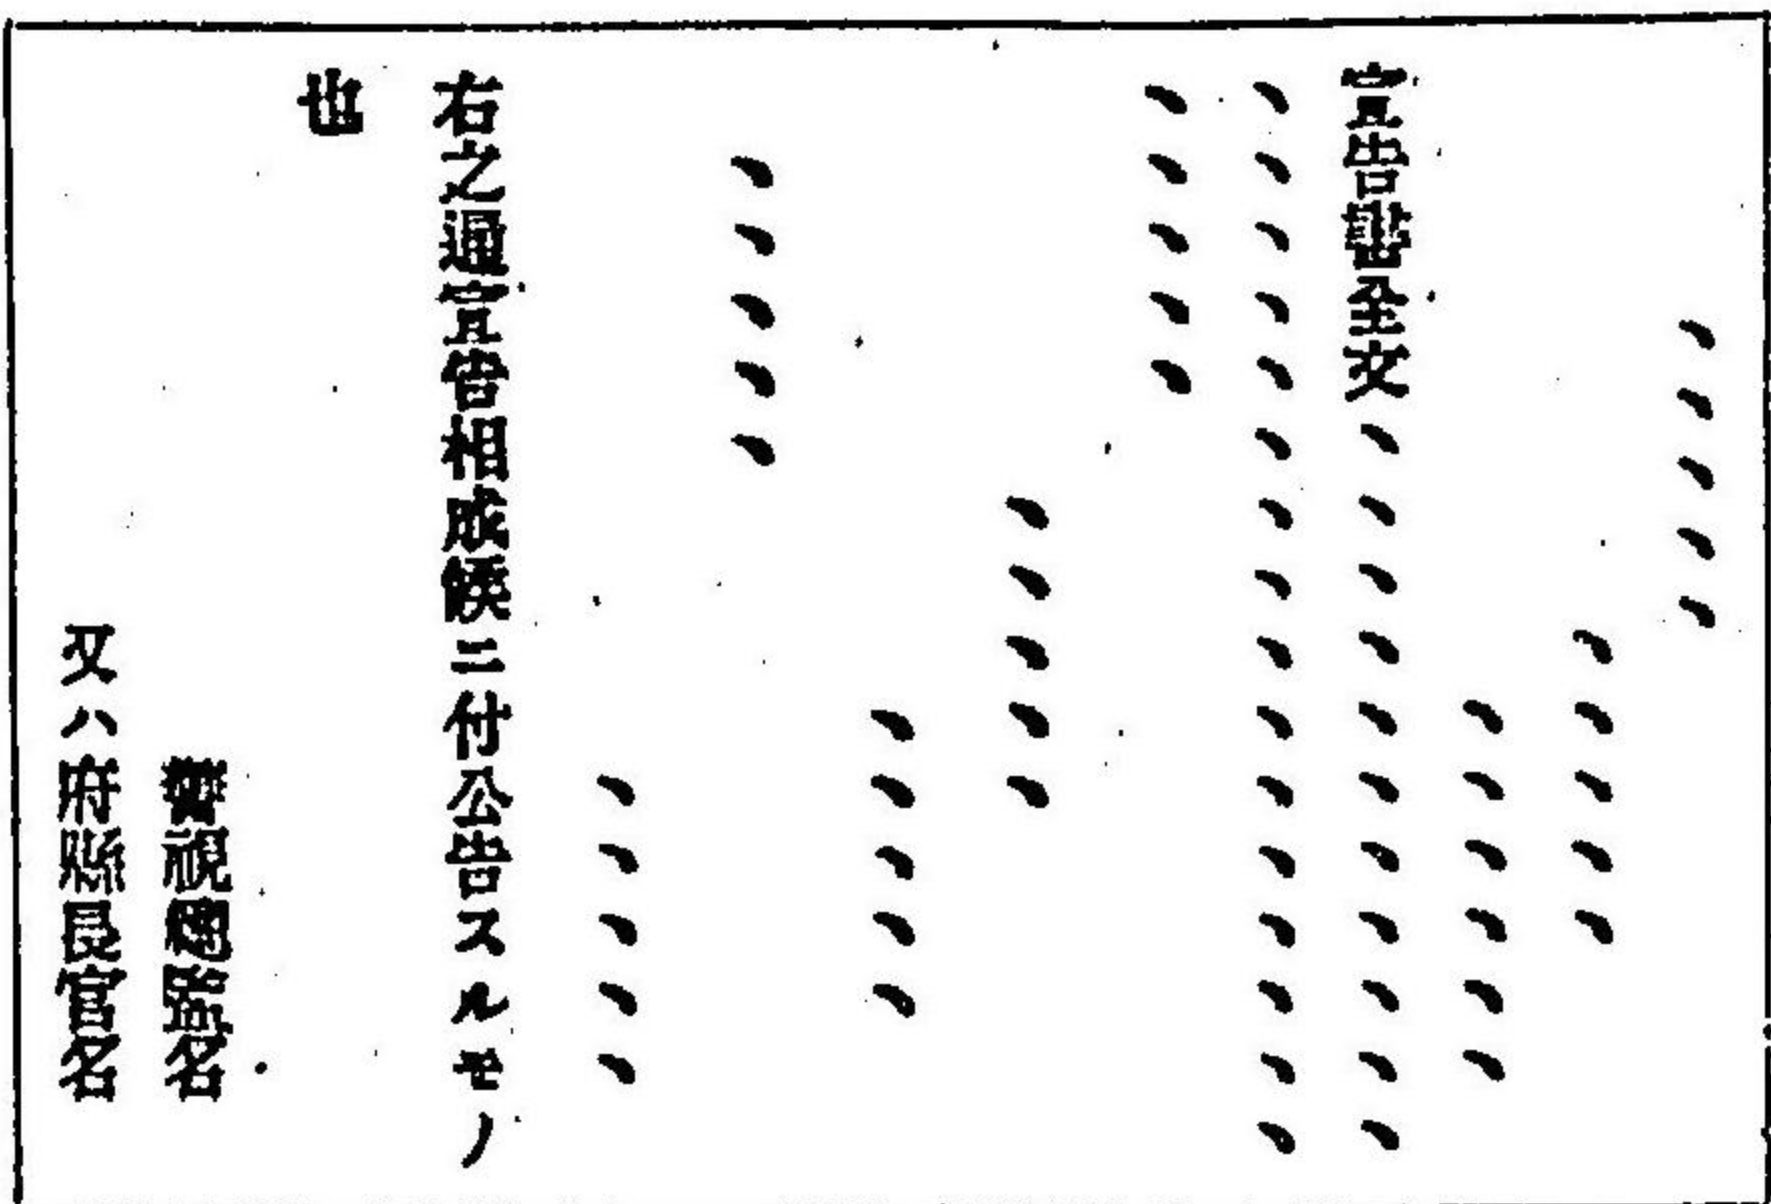 、、、、、
、、、、、
、、、、、、
宣告書全文、、、、、、、、、、、
、、、、、、、、、、、、、、、、
、、、、、
、、、、、
、、、、、
、、、、、
、、、、、
右之通宣告相成候ニ付公告スルモノ
也
警視總監名
又ハ府縣長官名